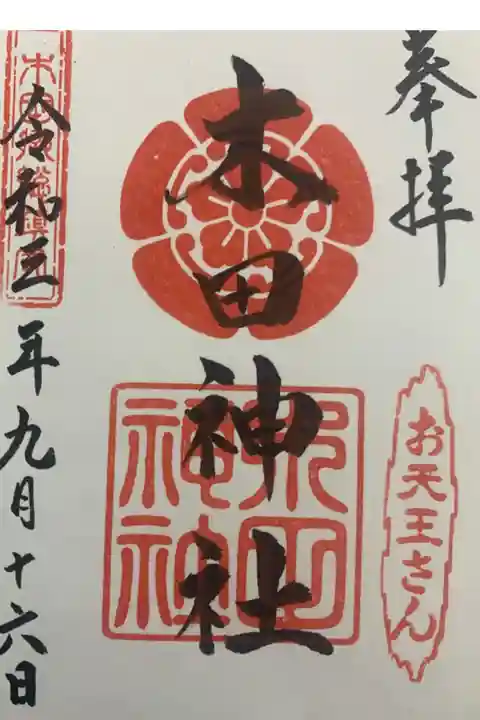 奉拝
木田神社
木田神社
お天王さん
令和三年九月十六日